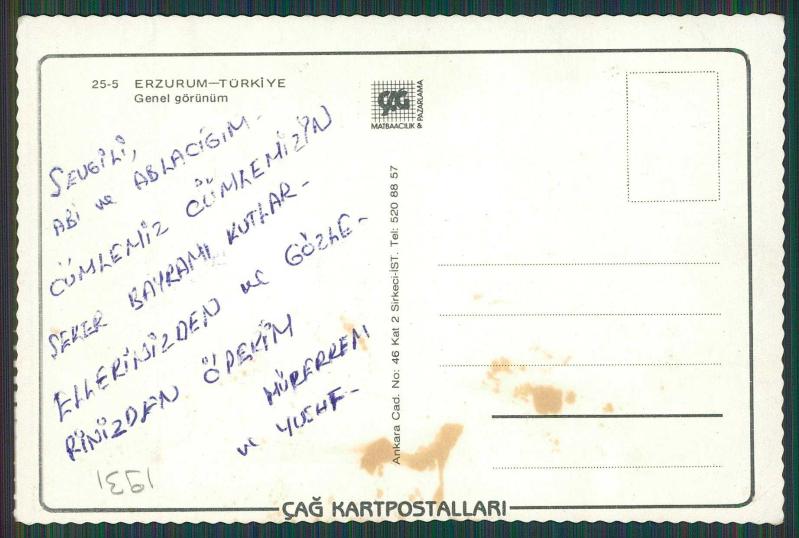 25-5 ERZURUM—TÜRKİYE
Genel görünüm
SEVGİLİ,
ABİ ve ABLACIĞIM-
CÜMLEMİZ CÜMLEMİZİN
ŞEKER BAYRAMI KUTLAR-
ELLERİNİZDEN ve GÖZLE-
RİNİZDEN ÖPERİM
MÜREFFEM
ve YUSUF-
1931
ÇAĞ
MATBAACILIK & PAZARLAMA
Ankara Cad. No: 46 Kat 2 Sirkeci-İST. Tel: 520 88 57
ÇAĞ KARTPOSTALLARI